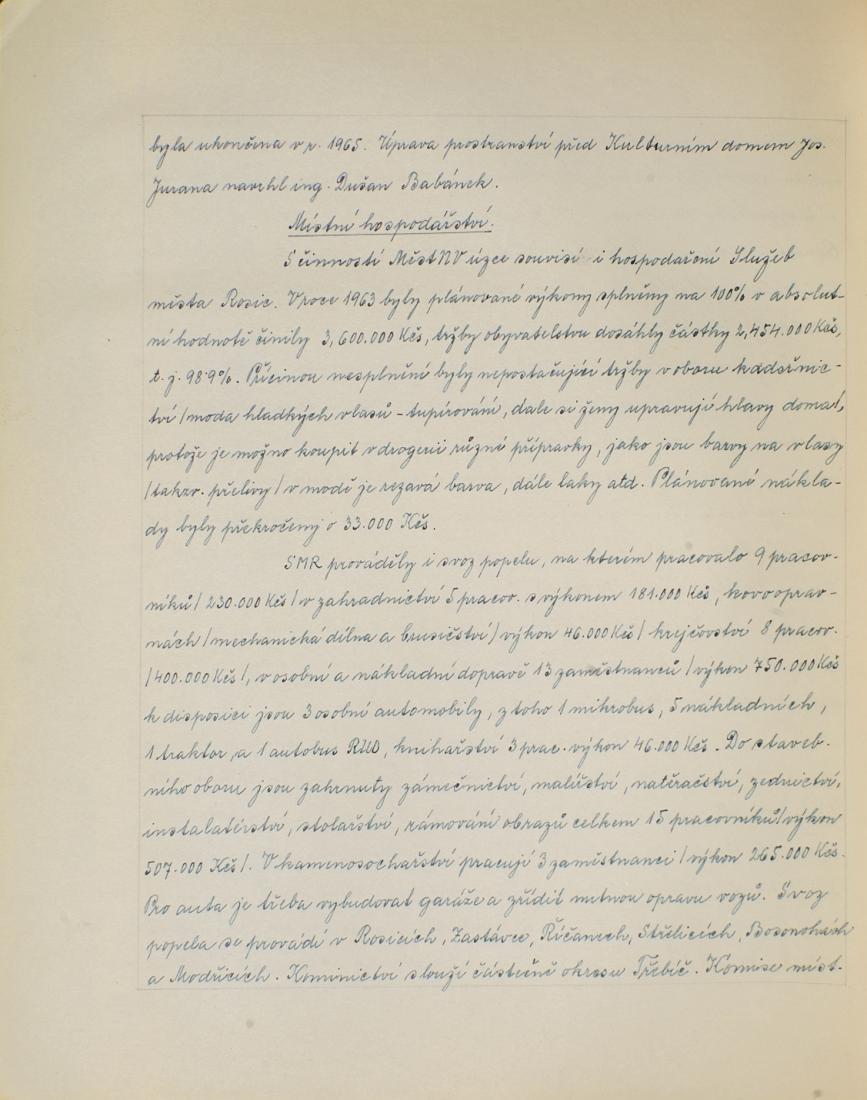 byla ukončena v r. 1965. Úprava prostranství před Kulturním domem Jos.
Jurana navrhl ing. Dušan Babánek.
Místní hospodářství.
S činností MěstNV úzce souvisí i hospodaření Služeb
města Rosic. V roce 1963 byly plánované výkony splněny na 100% v absolut-
ní hodnotě činily 3,600.000 Kčs, tržby obyvatelstvu dosáhly částky 2,454.000 Kčs,
t. j. 98.9%. Příčinou nesplnění byly nepostačující tržby v oboru kadeřnic-
tví /moda hladkých vlasů - tupírování, dále si ženy upravují hlavy doma/,
protože je možno koupit v drogerii různé přípravky, jako jsou barvy na vlasy
/takzv. přelivy/ v modě je rezavá barva, dále laky atd. Plánované nákla-
dy byly překročeny o 33.000 Kčs.
SMR prováděly i svoz popelu, na kterém pracovalo 9 pracov-
níků /230.000 Kčs/ v zahradnictví 5 pracov. s výkonem 181.000 Kčs, kovooprav-
nách /mechanická dílna a brusičství/ výkon 46.000 Kčs/ krejčovství 8 pracov.
/400.000 Kčs/, v osobní a nákladní dopravě 13 zaměstnanců /výkon 750.000 Kčs
k disposici jsou 3 osobní automobily, z toho 1 mikrobus, 5 nákladních,
1 traktor, a 1 autobus RUO, knihařství 3 prac. výkon 46.000 Kčs. Do staveb-
ního oboru jsou zahrnuty zámečnictví, malířství, natěračství, zednictví,
instalatérství, stolařství, rámování obrazů celkem 15 pracovníků /výkon
507.000 Kčs/. V kamenosochařství pracují 3 zaměstnanci /výkon 265.000 Kčs.
Pro auta je třeba vybudovat garáže a zřídit nutnou opravu vozů. Svoz
popela se provádí v Rosicích, Zastávce, Říčanech, Střelicích, Bosonohách
a Modřicích. Kominictví slouží částečně okresu Třebíč. Komise míst-